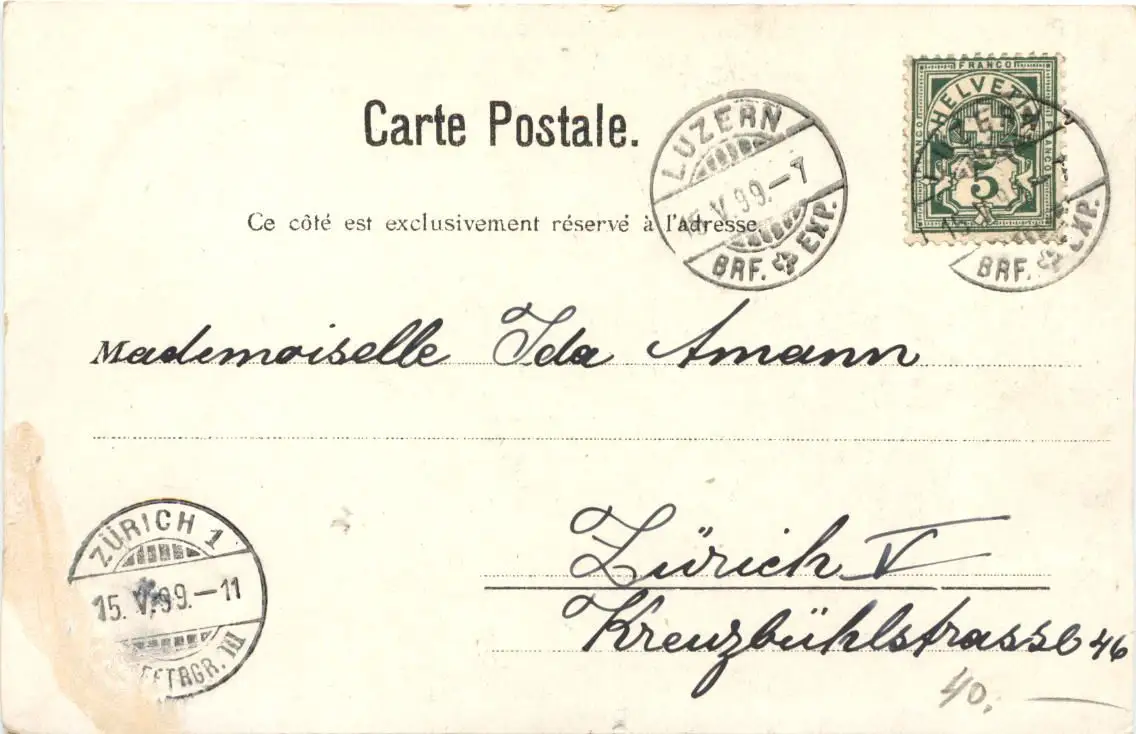 Carte Postale.
FRANCO
HELVETIA
FRANCO
FRANCO
5
LUZERN
15.V.99.–7
BRF. EXP.
BRF. EXP.
Ce côté est exclusivement réservé à l'adresse.
Mademoiselle Ida Amann
ZÜRICH 1
15.V.99.–11
BRIEFTRGR. III
Zürich V
Kreuzbühlstrasse 46
40.–